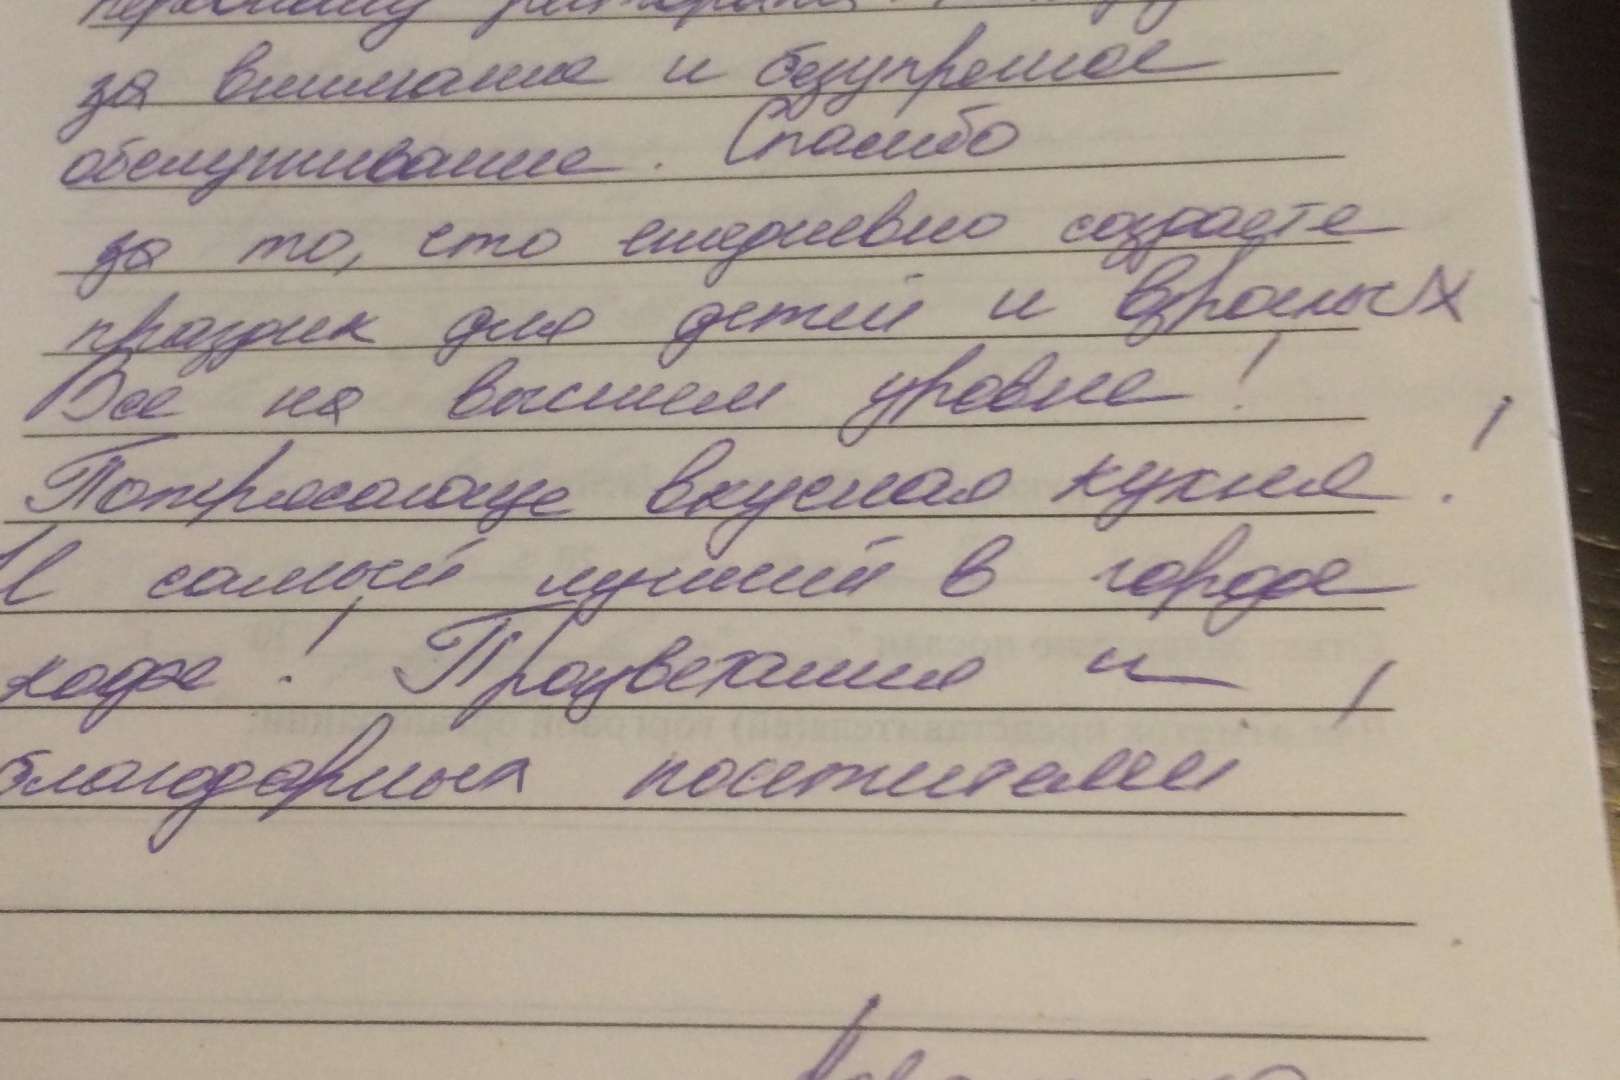 персоналу ресторана
за внимание и безупречное
обслуживание. Спасибо
за то, что ежедневно создаете
праздник для детей и взрослых
Все на высшем уровне!
Потрясающе вкусная кухня!
И самый лучший в городе
кафе! Процветания и
благодарных посетителей!